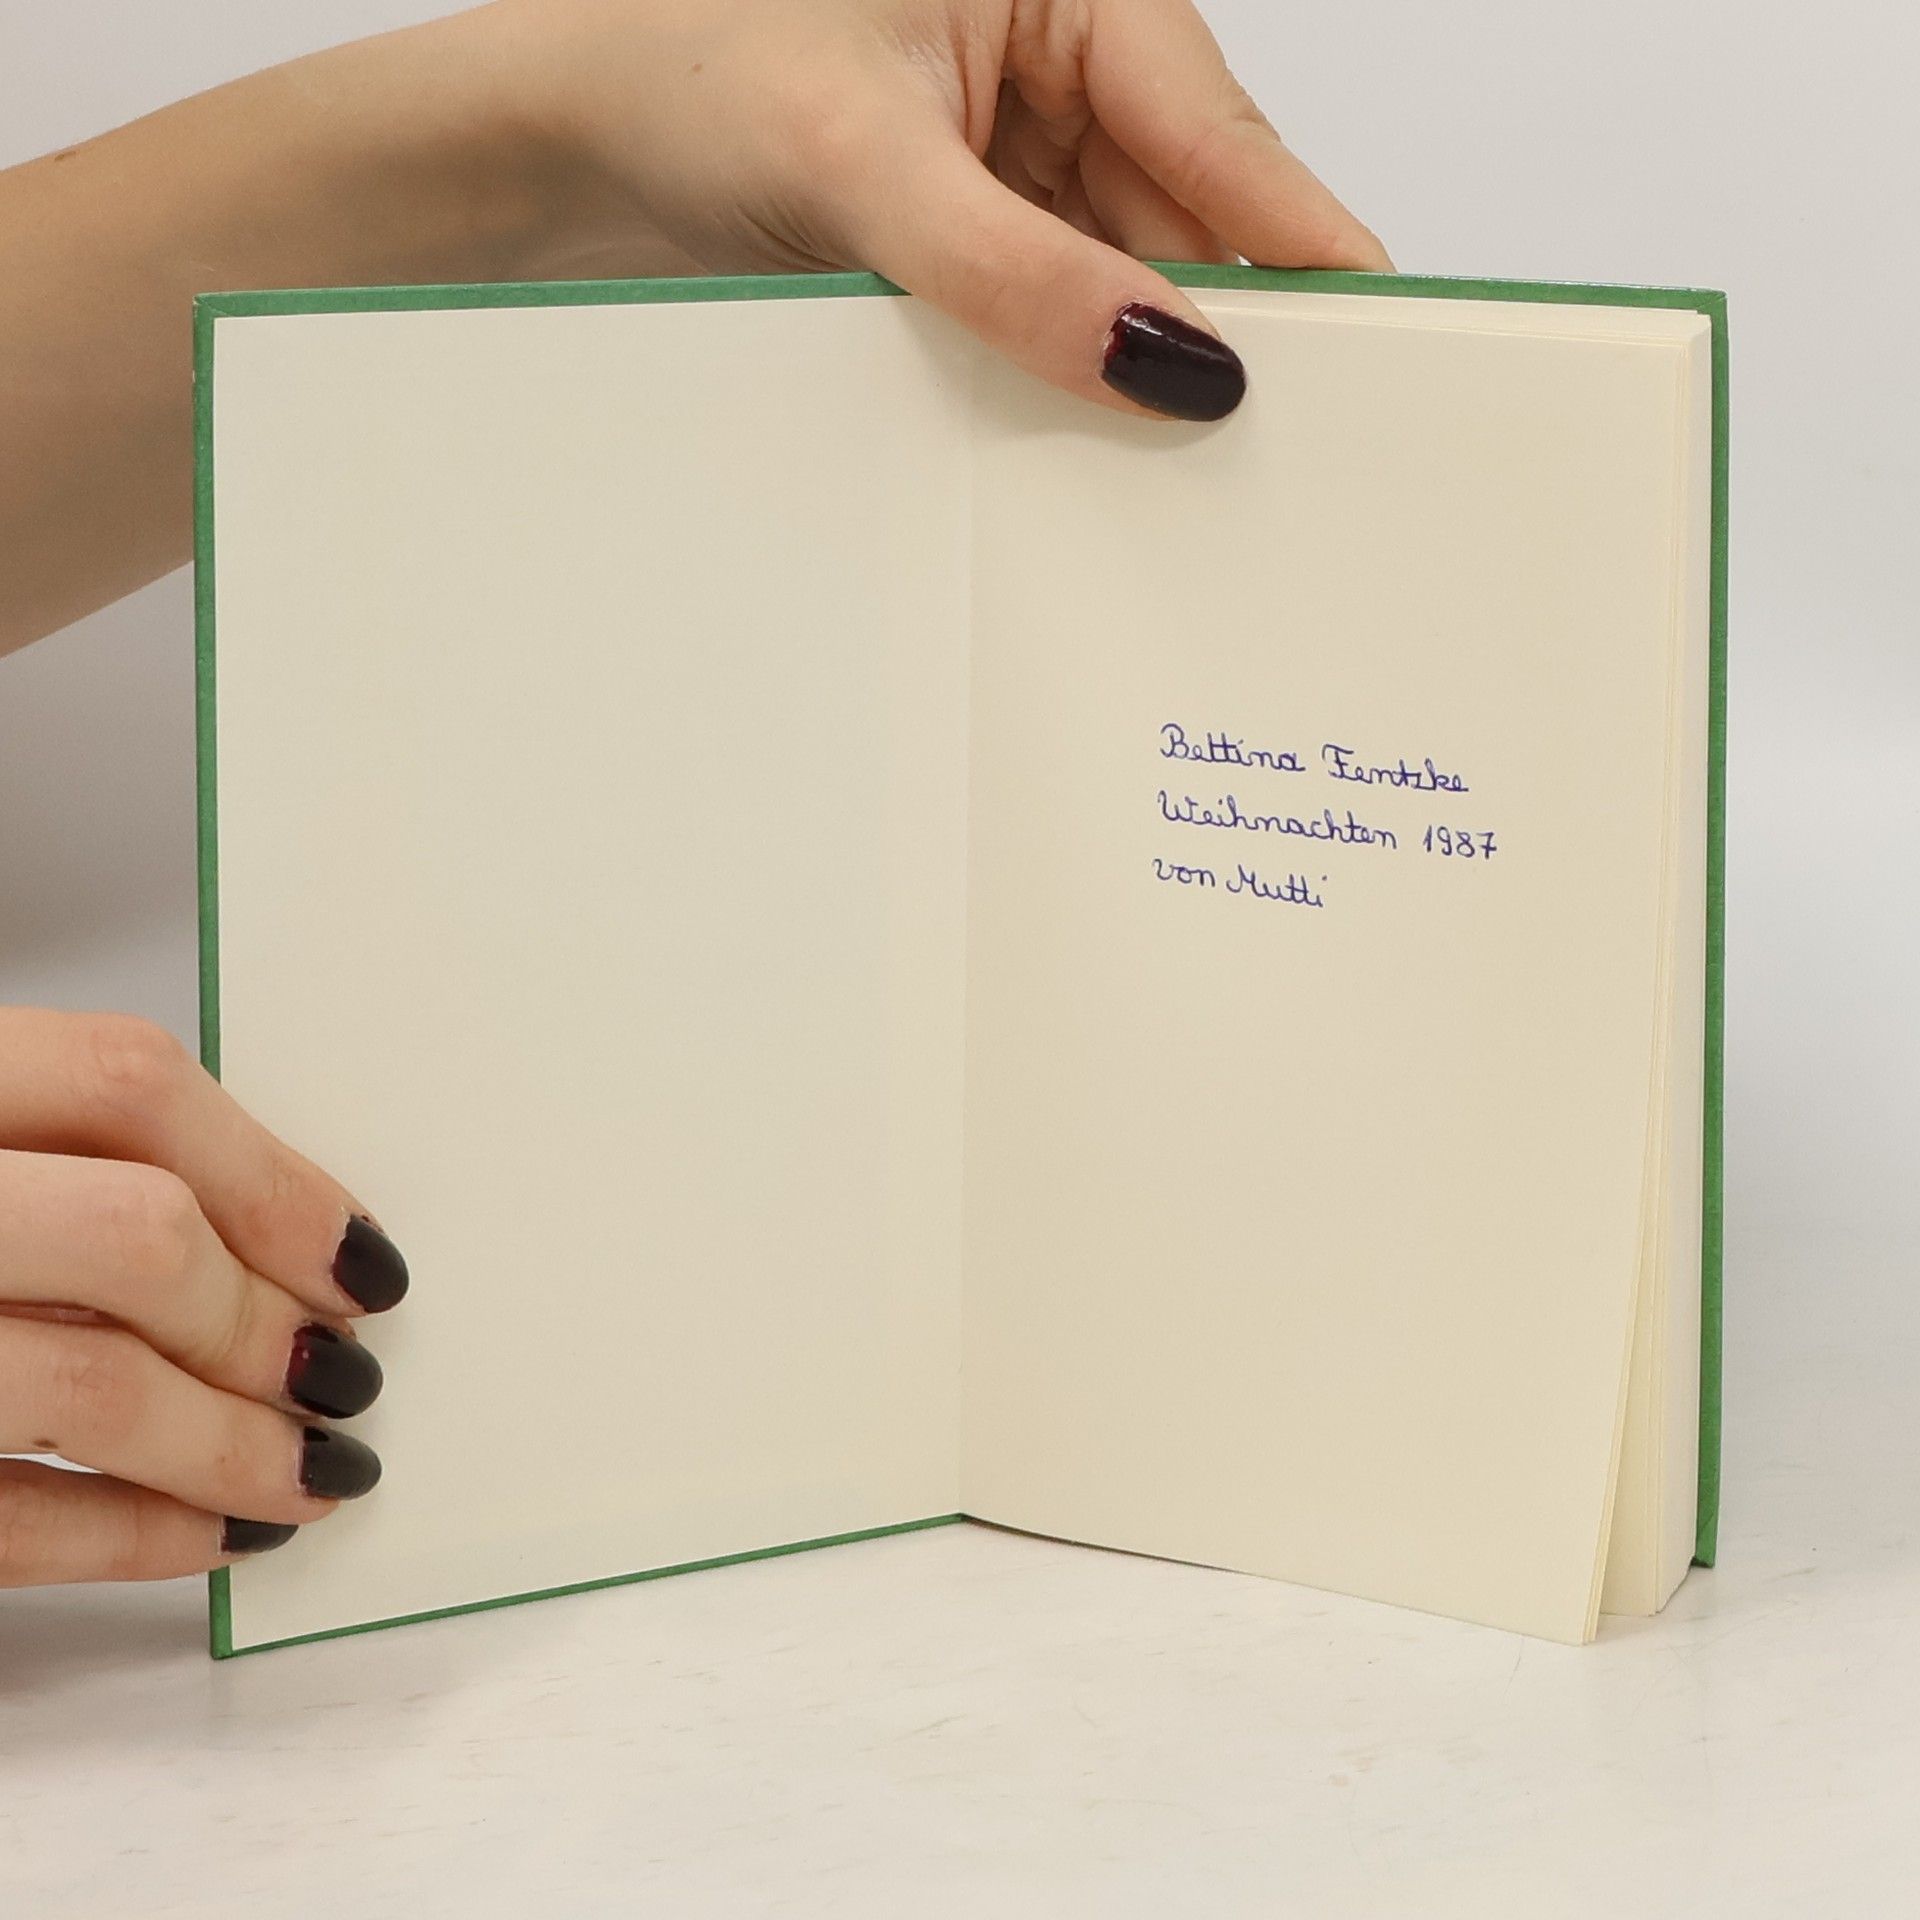 Bettina Fentzke
Weihnachten 1987
von Mutti